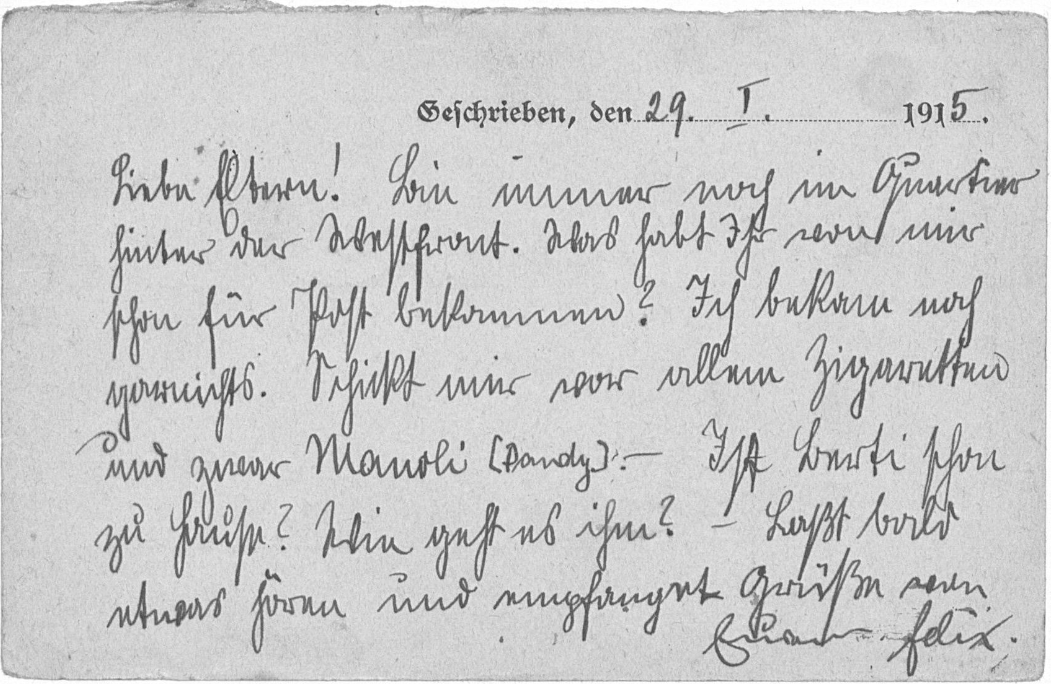 Geschrieben, den 29. I. 1915.
Liebe Eltern! Bin immer noch im Quartier
hinter der Westfront. Was habt Ihr von mir
schon für Post bekommen? Ich bekam noch
garnichts. Schickt mir vor allem Zigaretten
und zwar Manoli (Dandy).— Ist Berti schon
zu Hause? Wie geht es ihm? – Laßt bald
etwas hören und empfanget Grüße von
Eurem Felix.